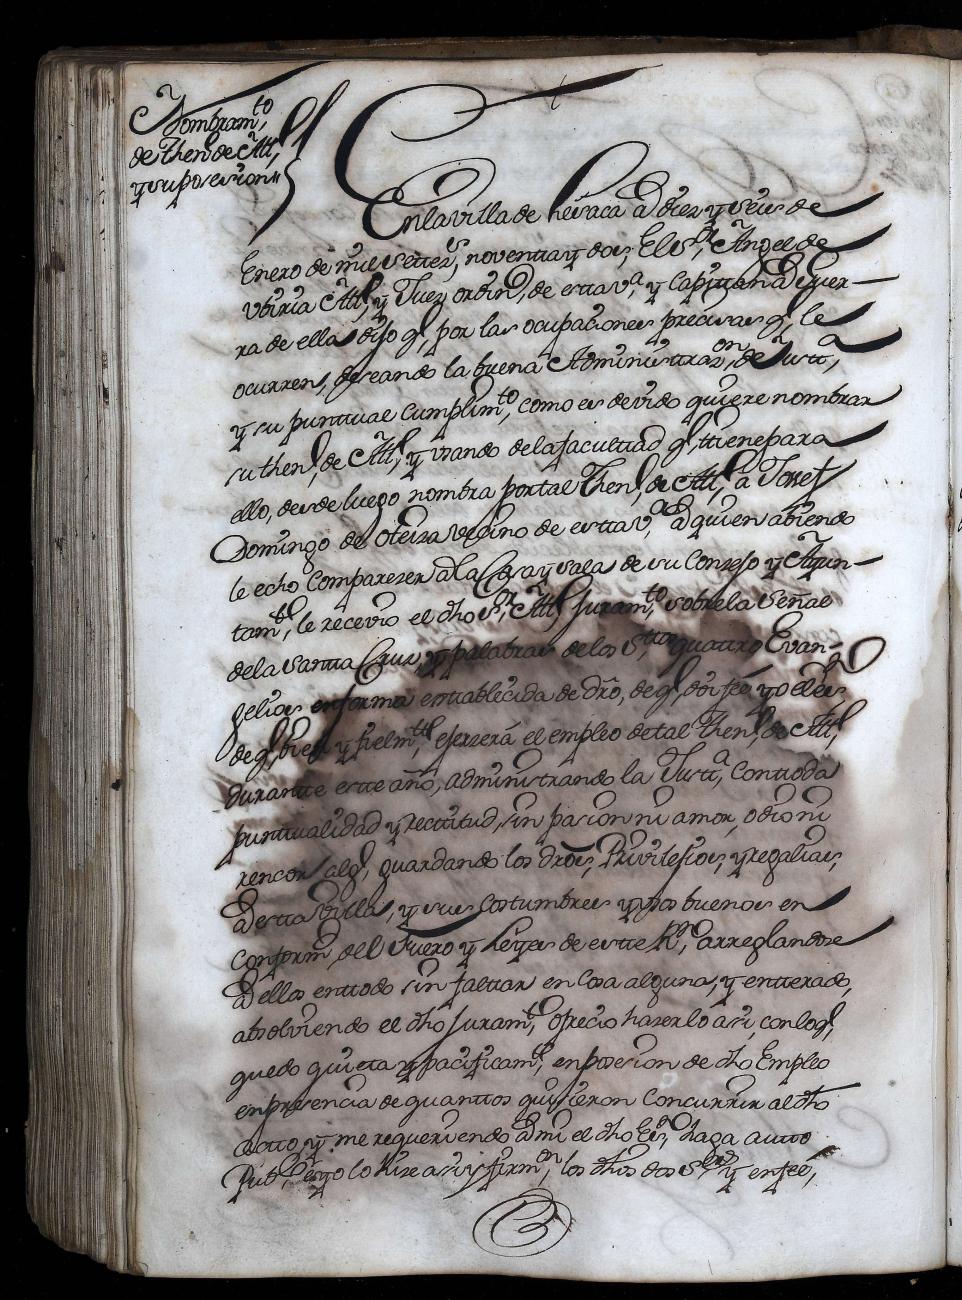 Nombram.to
de Then.e de Alc.l
y su posesion
En la villa de Lesaca a diez y seis de
Enero de mil settez.s noventta y dos, El S.r Angel de
Ubiria Alc.l y Juez ordin.o de estta v.a y Capittan a Guer-
ra de ella dijo q.e por las ocupaciones precisas q.e le
ocurren, deseando la buena Administtraz.on de Justt.a,
y su punttual cumplim.to, como es devido quiere nombrar
su then.e de Alc.l y usando de la facultad q.e ttiene para
ello, desde luego nombra por tal Then.e de Alc.l a Josef
Domingo de Oteiza vecino de estta v.a a quien abiendo
le echo Comparezer a la Casa y sala de su Conzejo y Ayun-
tam.to, le recevio el dho S.r Alc.l juram.to sobre la Señal
de la Santta Cruz, y palabras de los S.ttos quattro Evan-
gelios en forma establecida de dro, de q.e doi feé, y ofreció
de q.e bien y fielm.tte ejerzerá el empleo de tal Then.e de Alc.l
durantte estte año, administrando la Justt.a, con ttoda
punttualidad y recttitud, sin pasion ni amor, odio ni
rencor alg.o, guardando los dros, Privilejios, y regalias,
a estta Villa, y sus Costumbres y usos buenos en
conform.d del Fuero y Leyes de estte R.no, arreglandose
a ellos en ttodo sin faltar en Cosa alguna, y entterado,
absolviendo el dho juram.to, ofrecio hazerlo asi, con lo q.e
quedo quieta y pacificam.te en posesion de dho Empleo
en presencia de quanttos quisieron Concurrir al dho
actto, y me requeriendo a mi el dho Es.no haga autto
Pub.co, é yo lo hize asi y firm.on los dhos dos S.res y en feé,